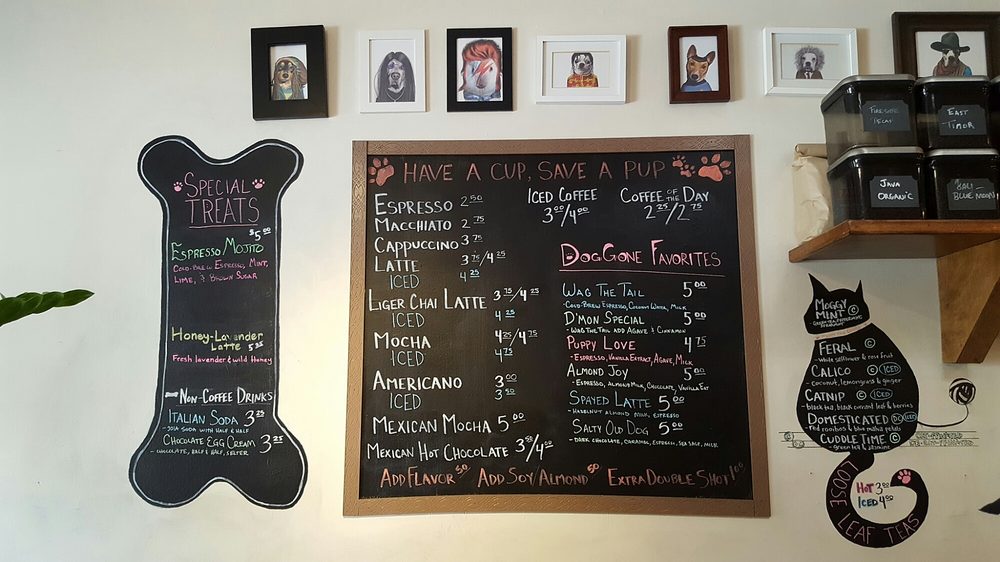 SPECIAL
TREATS
$5.00
ESPRESSO MOJITO
COLD-BREW ESPRESSO, MINT,
LIME, & BROWN SUGAR
Honey-Lavender
Latte 5.25
Fresh lavender & wild Honey
NON-COFFEE DRINKS
ITALIAN SODA 3.25
- SODA WITH HALF & HALF
CHOCOLATE EGG CREAM 3.25
- CHOCOLATE, HALF & HALF, SELTZER
HAVE A CUP, SAVE A PUP
ESPRESSO 2.50
MACCHIATO 2.75
CAPPUCCINO 3.75
LATTE 3.75/4.25
ICED 4.25
LIGER CHAI LATTE 3.75/4.25
ICED 4.25
MOCHA 4.25/4.75
ICED 4.75
AMERICANO 3.00
ICED 3.50
MEXICAN MOCHA 5.00
MEXICAN HOT CHOCOLATE 3.50/4.00
ICED COFFEE
3.00/4.00
COFFEE OF THE DAY
2.25/2.75
DOGGONE FAVORITES
WAG THE TAIL 5.00
- COLD-BREW ESPRESSO, COCONUT WATER, MILK
D'MON SPECIAL 5.00
- WAG THE TAIL ADD AGAVE & CINNAMON
PUPPY LOVE 4.75
- ESPRESSO, VANILLA EXTRACT, AGAVE, MILK
ALMOND JOY 5.00
- ESPRESSO, ALMOND MILK, CHOCOLATE, VANILLA EXT
SPAYED LATTE 5.00
- HAZELNUT ALMOND MILK, ESPRESSO
SALTY OLD DOG 5.00
- DARK CHOCOLATE, CARAMEL, ESPRESSO, SEA SALT, MILK
ADD FLAVOR .50 ADD SOY/ALMOND .50 EXTRA DOUBLE SHOT 1.00
FIRESIDE
DECAF
EAST
TIMOR
JAVA
ORGANIC
BALI
BLUE MOON
MOGGY
MINT ©
FERAL -
white sunflower & rose fruit
CALICO © ICED
- coconut, lemongrass & ginger
CATNIP © ICED
- black tea, black currant leaf & berries
DOMESTICATED DC ICED
- red rooibos & blue mallow petals
CUDDLE TIME ©
- green tea & jasmine
HOT 3.00
ICED 4.00
LOOSE LEAF TEAS